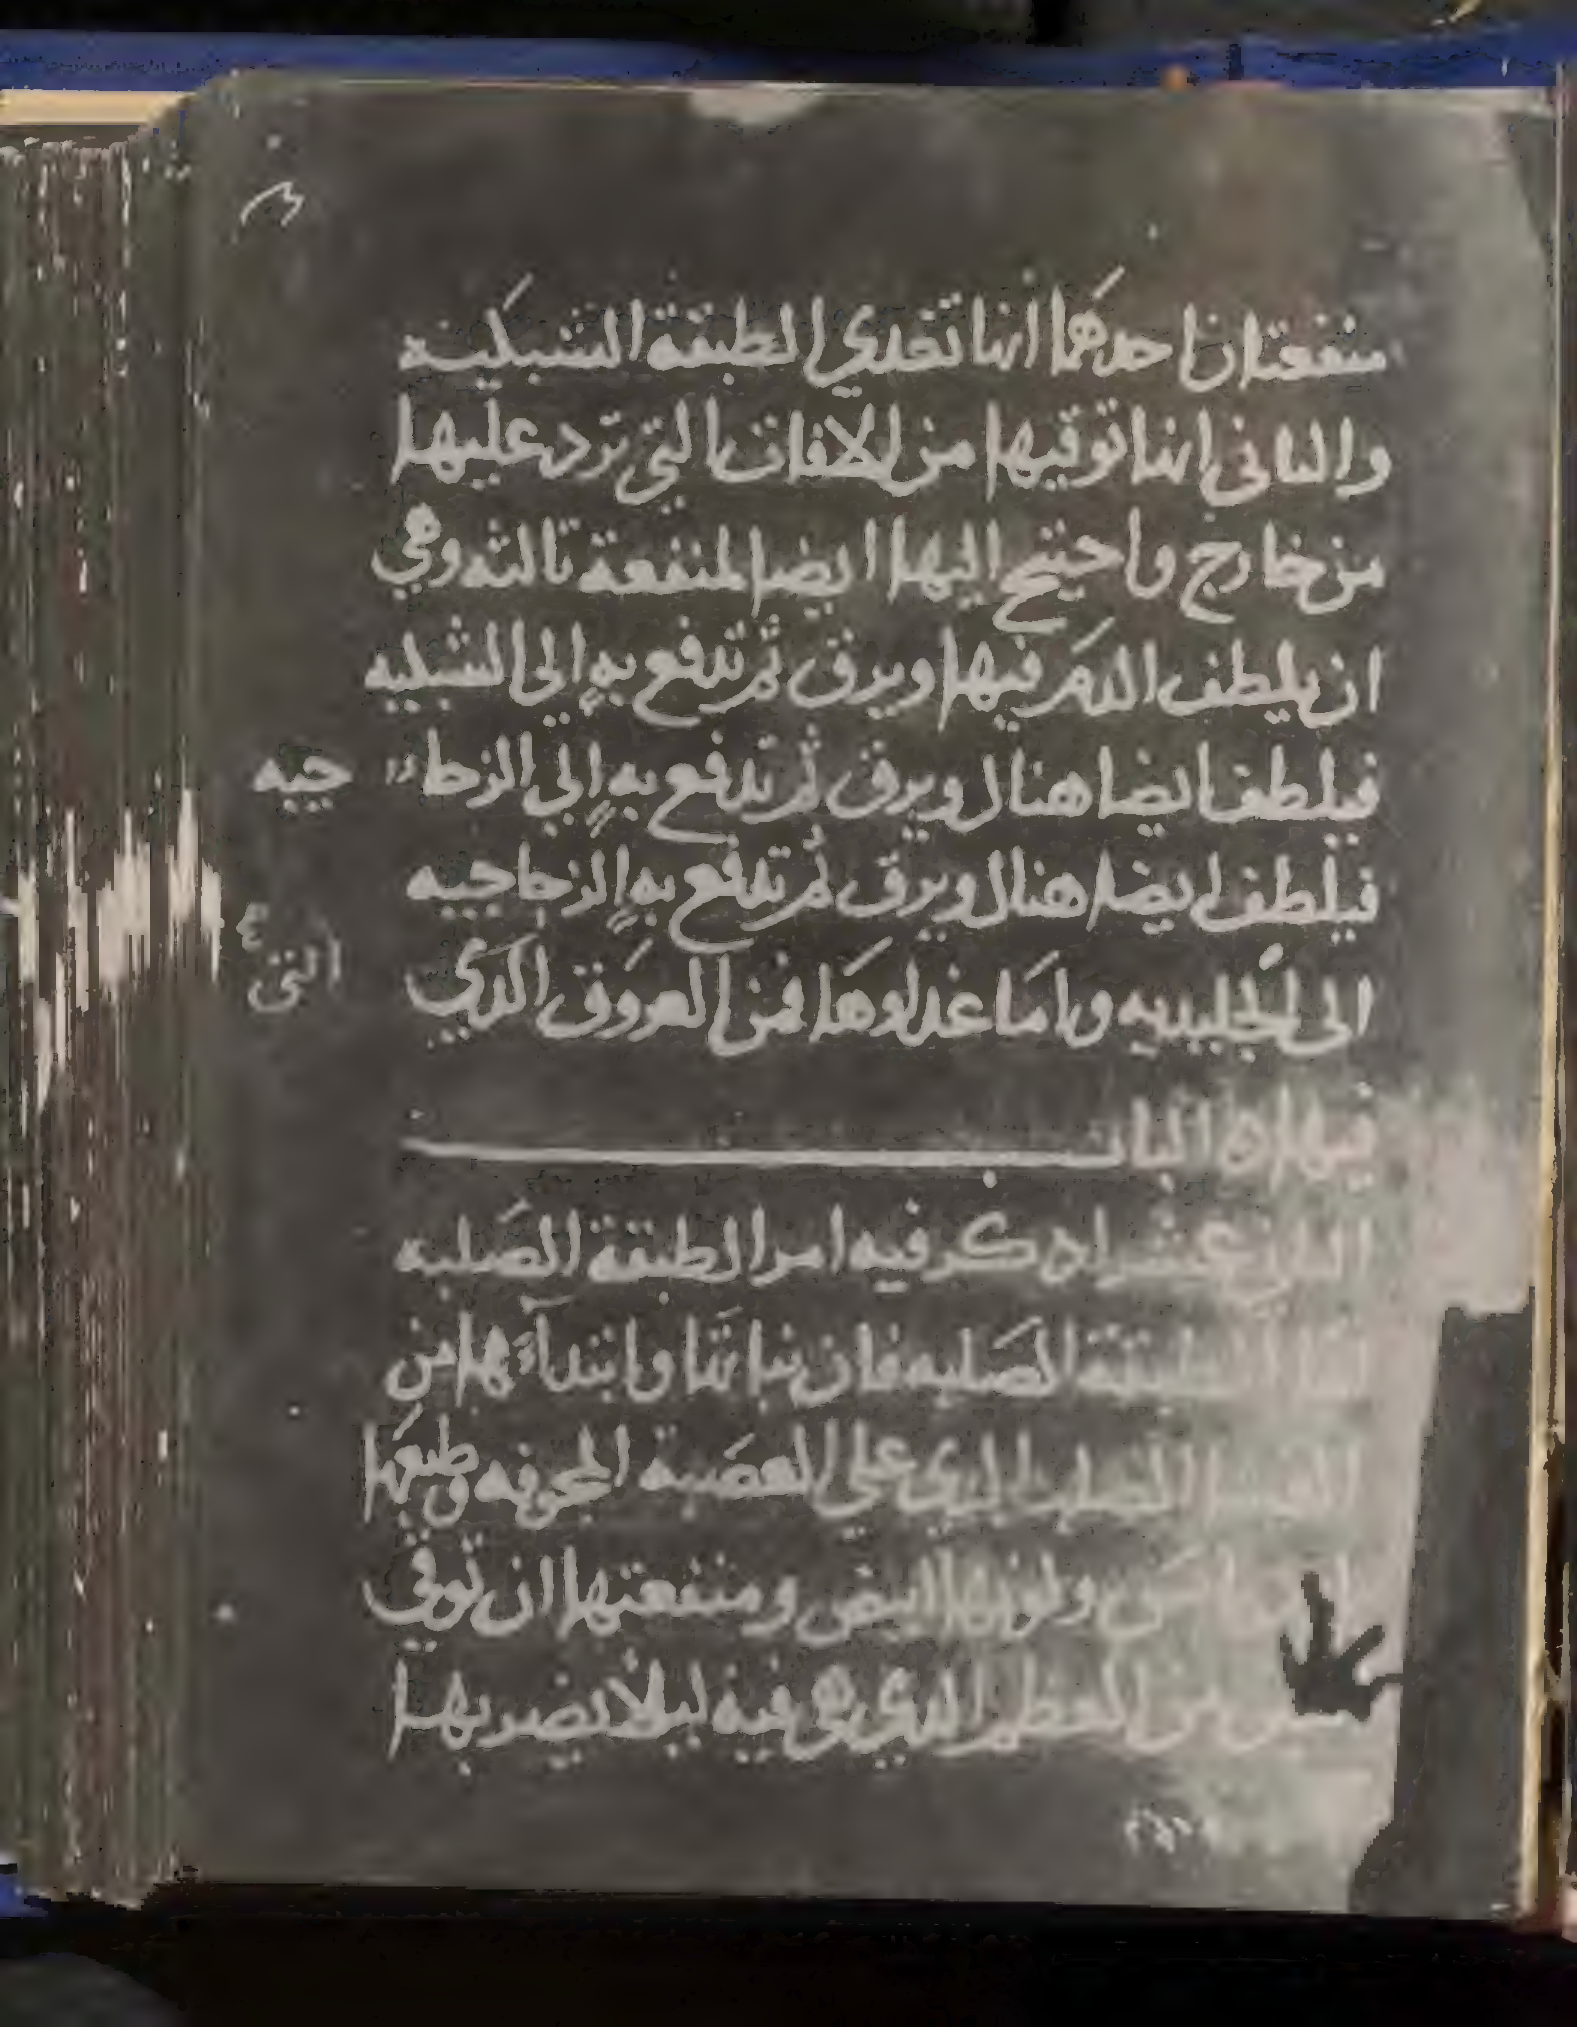 منفعتان احدهما انها تغدي الطبقة الشبكيه
والثاني انها توقيها من الافات التي ترد عليها
من خارج واحتيج اليها ايضا لمنفعة ثالثه وهي
ان يلطف الدم فيها ويرق ثم تدفع به الى الشبكيه
فيلطف ايضا هنال ويرق ثم تدفع به الي الزجا جيبه
فيلطف ايضا هنال ويرق ثم تدفع به الزجاجيبه
الى الجليديه واما غداوها فمن العروق الذي التي
فيها البابـ
عشر اذكر فيه امر الطبقة الصلبه
الطبقة الصلبه فان نباتها وابتداءها من
الغشا الصلب الذي على العصبة المجوفه وطبعها
ولونها ابيض ومنفعتها ان توقي
من العظم الذي هي فيه ليلا يضر بها